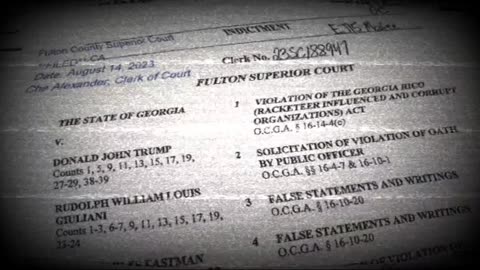 INDICTMENT
Fulton County Superior Court
***FILED***CA
Date: August 14, 2023
Che Alexander, Clerk of Court
Clerk No. 23SC188947
FULTON SUPERIOR COURT
THE STATE OF GEORGIA
v.
DONALD JOHN TRUMP
Counts 1, 5, 9, 11, 13, 15, 17, 19,
27-29, 38-39
RUDOLPH WILLIAM LOUIS
GIULIANI
Counts 1-3, 6-7, 9, 11, 13, 15, 17, 19,
23-24
EASTMAN
1 VIOLATION OF THE GEORGIA RICO
(RACKETEER INFLUENCED AND CORRUPT
ORGANIZATIONS) ACT
O.C.G.A. § 16-14-4(c)
2 SOLICITATION OF VIOLATION OF OATH
BY PUBLIC OFFICER
O.C.G.A. §§ 16-4-7 & 16-10-1
3 FALSE STATEMENTS AND WRITINGS
O.C.G.A. § 16-10-20
4 FALSE STATEMENTS AND WRITINGS
O.C.G.A. § 16-10-20
OF VIOLATION OF